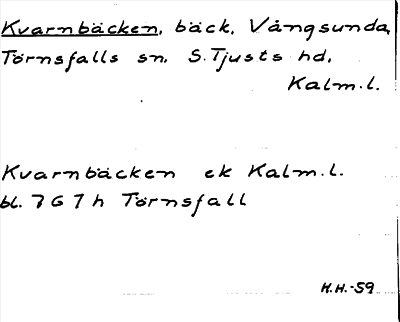 Kvarnbäcken, bäck, Vångsunda,
Törnsfalls sn. S. Tjusts hd.
Kalm. l.
Kvarnbäcken ek Kalm. l.
bl. 7 G 7 h Törnsfall
H.H.-59